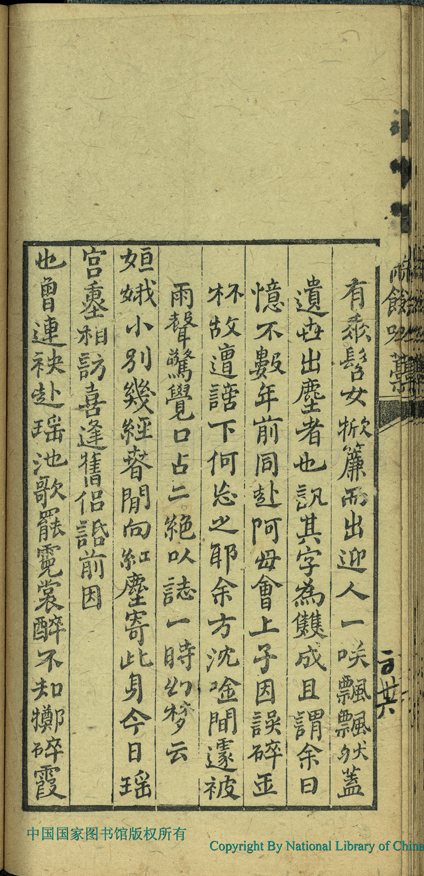 有垂髫女掀簾而出迎人一咲飄飄然蓋
遺世出塵者也訊其字為雙成且謂余曰
憶不數年前同赴阿母會上子因誤碎玉
杯故遭謫下何忘之耶余方沈唫間遽被
雨聲驚覺口占二絕以誌一時幻夢云
姮娥小別幾經春閒向紅塵寄此身今日瑶
宮重相訪喜逢舊侶話前因
也曾連袂赴瑶池歌罷霓裳醉不知擲碎霞
餘吟藁
中国国家图书馆版权所有
Copyright By National Library of China